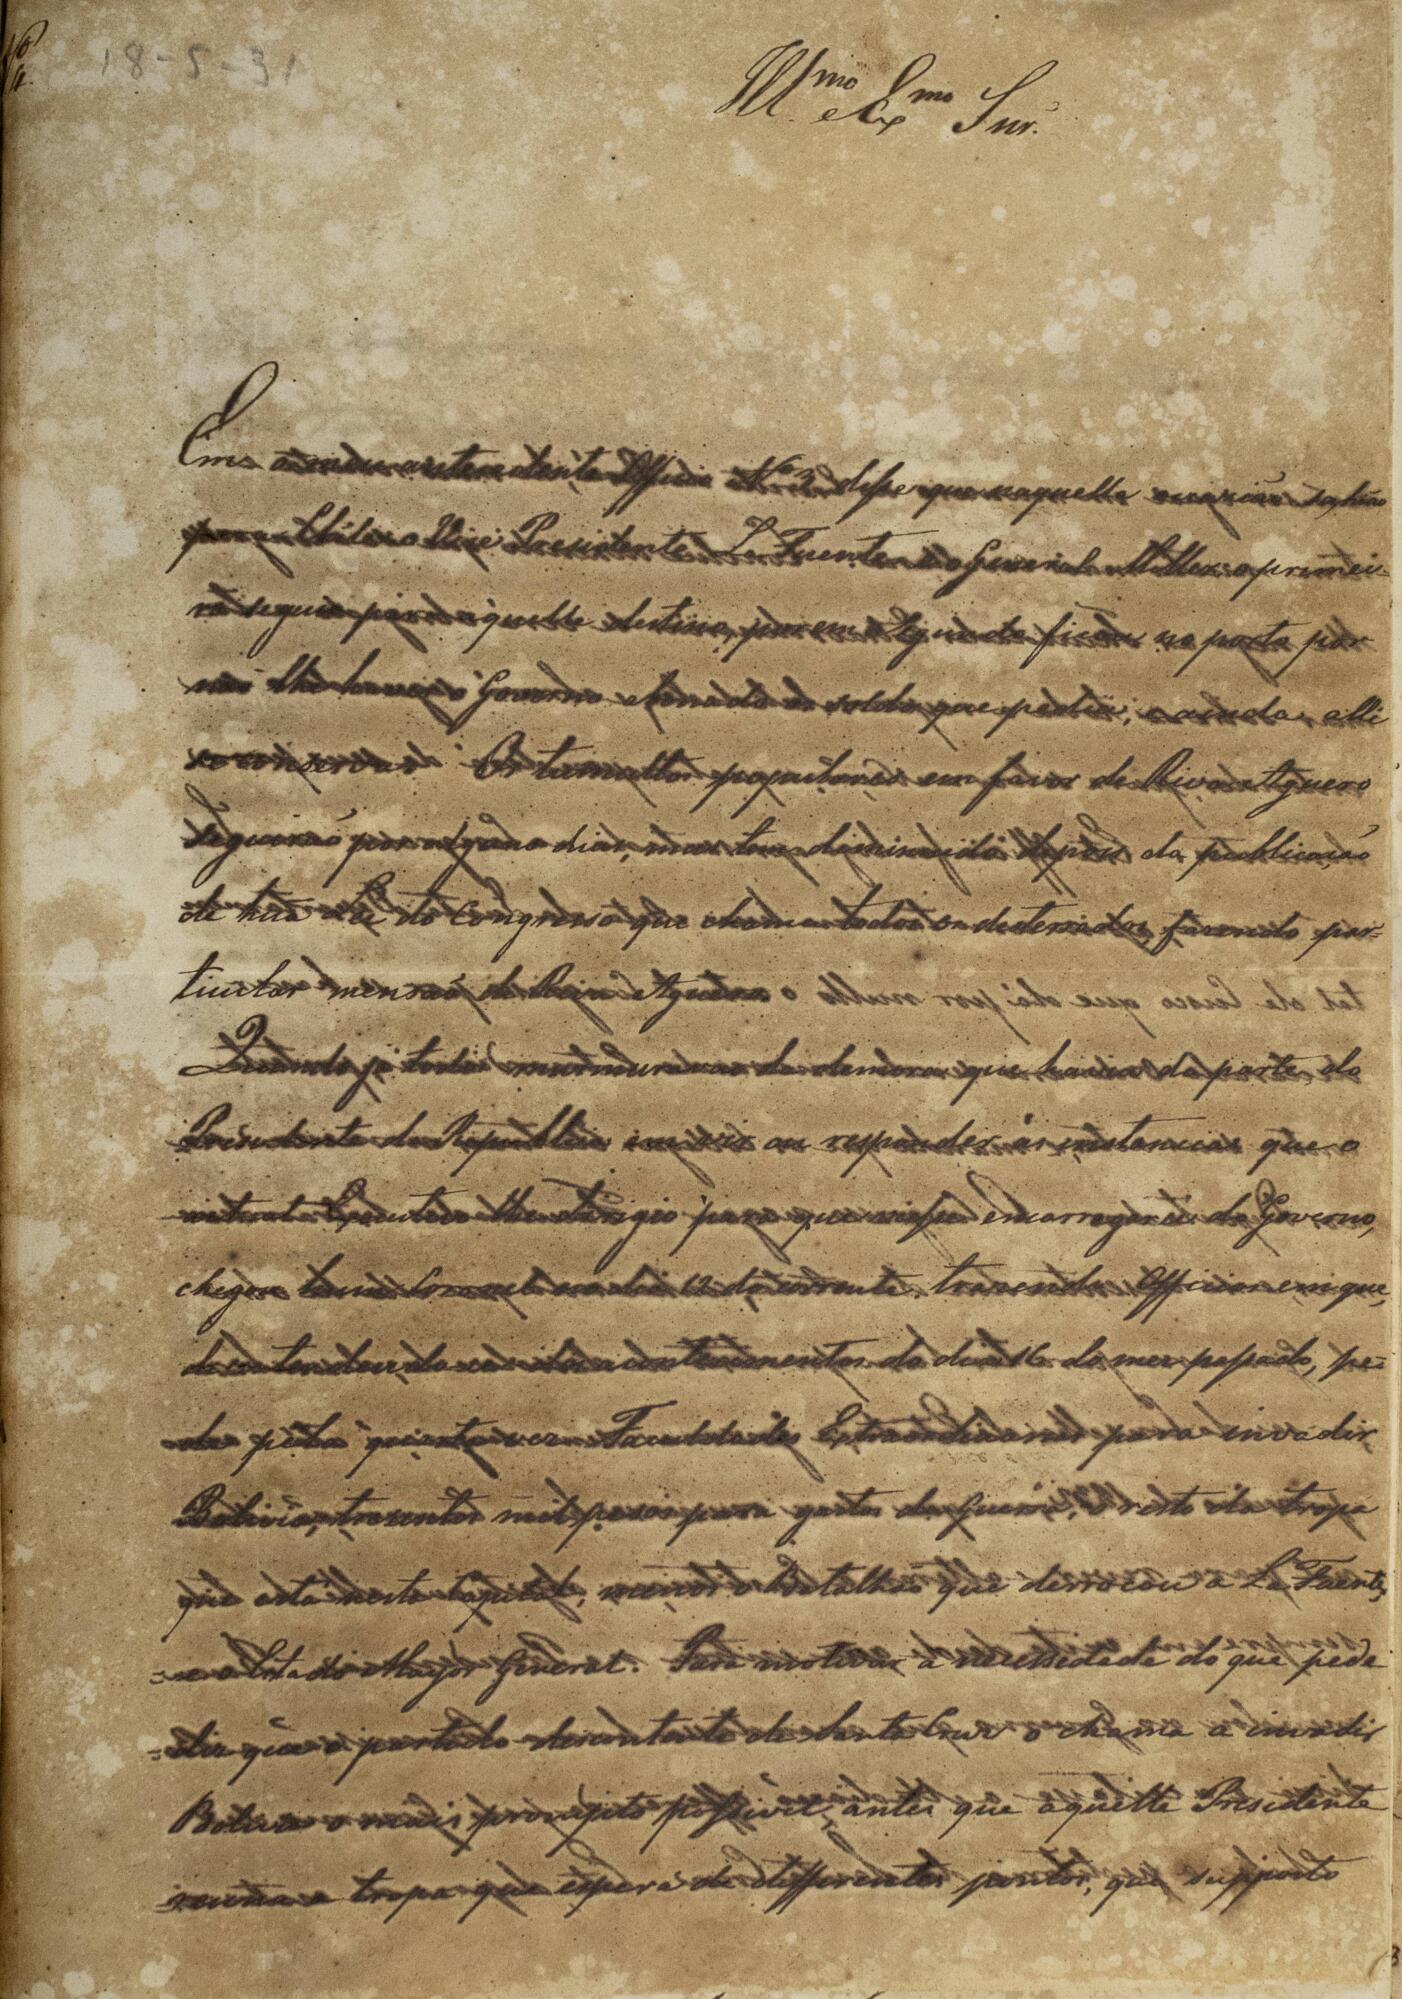 18-5-31
Ill.mo e Ex.mo Snr.
Em o meu antecedente Officio Nº 3 disse que naquella occazião sahião
para Chile o Vice Presidente La Fuente e o General Miller: o primei-
ro seguio para aquelle destino, porem o segundo ficou no porto por
não lhe haver o Governo abonado o soldo que pedia, e ainda alli
se conserva. Os tumultos populares em favor de Riva Aguero
seguirão por alguns dias, mas tem diminuido depois da publicação
de hua Lei do Congresso que chama todos os desterrados, fazendo par-
ticular mensão de Riva Aguero
Quando já todos murmuravão da demora que havia da parte do
Presidente da Republica em vir ou responder ás instancias que o
actual Executivo lhe dirigio para que viesse encarregarse do Governo,
chegou hum Coronel no dia 12 do corrente, trazendo Officios em que,
dos acontecimentos do dia 16 do mez passado, pe-
de pela quarta vez Faculdades Extraordinarias para invadir
Bolivia, trezentos mil pezos para gastos da Guerra, o resto da tropa
que está nesta Capital, menos o Batalhão que derrocou a La Fuente,
e o Estado Mayor General. Para motivar a necessidade do que pede
diz que o partido descontente de Santa Cruz o chama a invadir
Bolivia o mais prompto possivel, antes que aquelle Presidente
reuna a tropa que espera de differentes pontos, que supposto